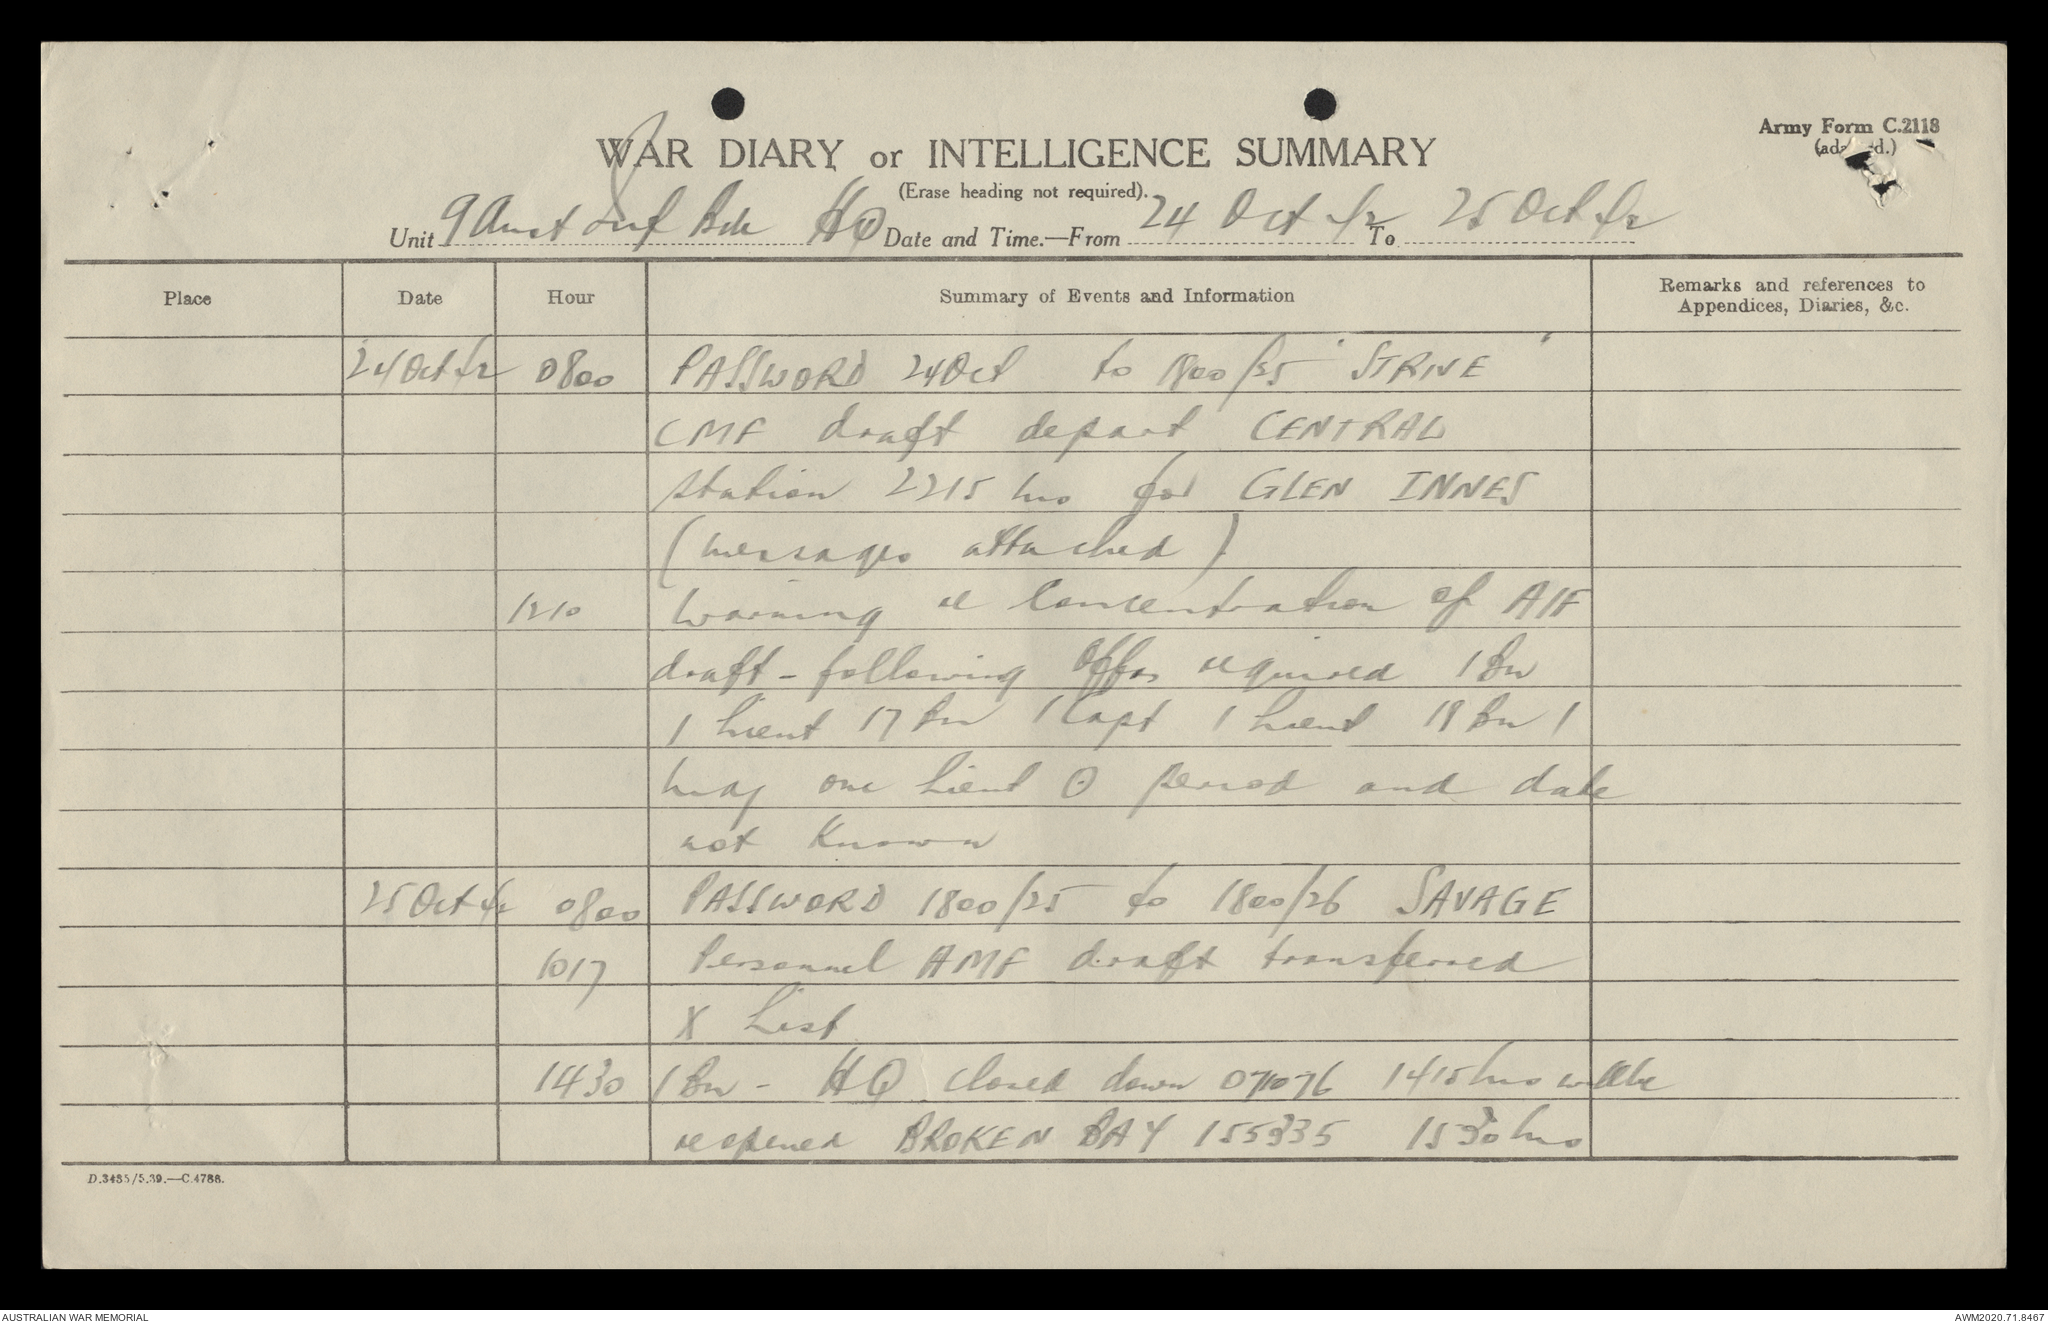 Army Form C.2118
(adapted.)
WAR DIARY or INTELLIGENCE SUMMARY
(Erase heading not required).
Unit 9 Aust Inf Bde HQ Date and Time.—From 24 Oct 42 To 25 Oct 42
Place Date Hour Summary of Events and Information Remarks and references to
Appendices, Diaries, &c.
24 Oct 42 0800 PASSWORD 24 Oct to 1800/25 "STRIVE"
CMF draft depart CENTRAL
Station 2215 hrs for GLEN INNES
(messages attached)
1210 Warning re concentration of AIF
draft - following offrs required 1 Bn
1 Lieut 17 Bn 1 Capt 1 Lieut 18 Bn 1
Maj one Lieut period and date
not known
25 Oct 42 0800 PASSWORD 1800/25 to 1800/26 SAVAGE
1017 Personnel AMF draft transferred
X List
1430 1 Bn - HQ closed down 071076 1415 hrs will be
reopened BROKEN BAY 155335 1530 hrs
D.3485/5.39.—C.4788.
AUSTRALIAN WAR MEMORIAL AWM2020.71.8467